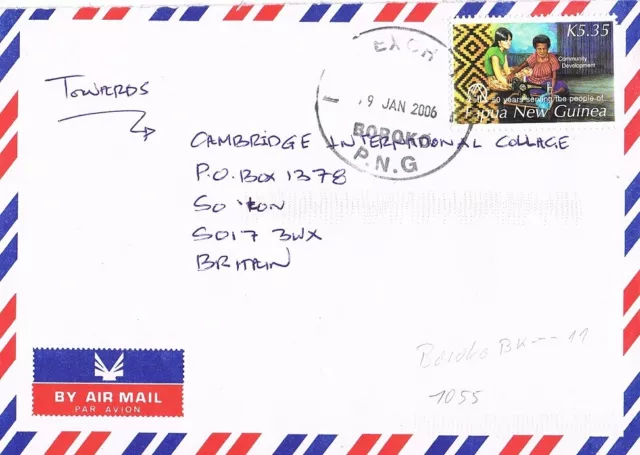 K5.35
Community
Development
50 years serving the people of
Papua New Guinea
9 JAN 2006
BOROKO
P.N.G
TOWARDS
CAMBRIDGE INTERNATIONAL COLLAGE
P.O. BOX 1378
SO'TON
SO17 3WX
BRITAIN
Boroko BK--11
1055
BY AIR MAIL
PAR AVION